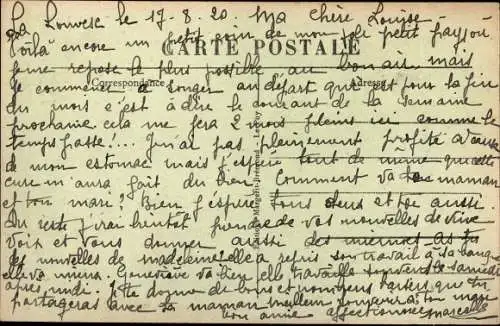 La Louvesc le 17-8-20. Ma chère Louise
Voilà encore un petit coin de mon joli petit pays où
CARTE POSTALE
je me repose le plus possible au bon air mais
Correspondance Adresse
je commence à songer au départ qui est pour la fin
du mois c'est à dire le courant de la semaine
prochaine cela me fera 2 mois pleins ici comme le
temps passe!... Je n'ai pas pleinement profité à cause
de mon estomac mais j'espère tout de même que cette
cure m'aura fait du bien. Comment va ta maman
et ton mari? Bien j'espère tous deux et toi aussi.
Du reste j'irai bientôt prendre de vos nouvelles de vive
voix et vous donner aussi des miennes. As tu
des nouvelles de Madeleine? elle a repris son travail à sa banque
elle va mieux. Geneviève va bien elle travaille souvent le samedi
après midi. Je te donne de bons et nombreux baisers que tu
partageras avec ta maman meilleur souvenir à ton mari
ton amie affectionnée Marcelle